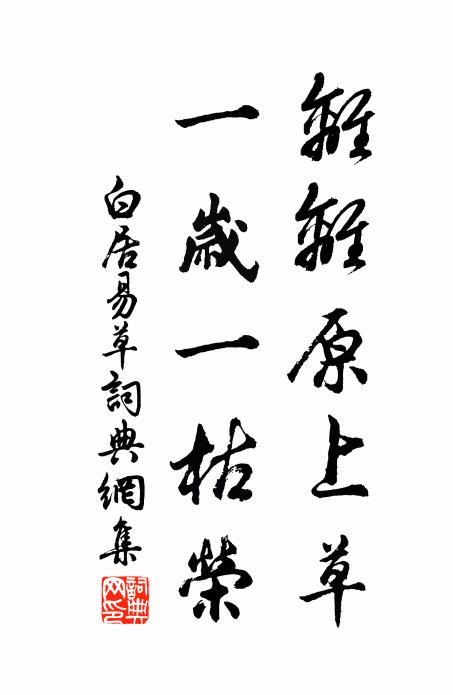 離離原上草
一歲一枯榮
白居易草詞典網集
詞典网印